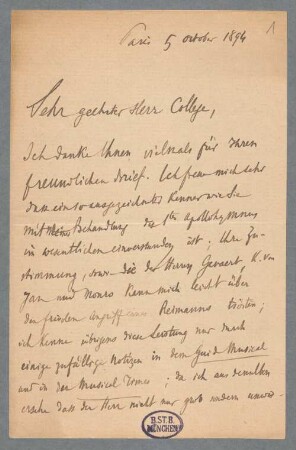 1
Paris 5 October 1894
Sehr geehrter Herr College,
Ich danke Ihnen vielmals für Ihren
freundlichen Brief. Ich freue mich sehr
dass ein so ausgezeichneter Kenner wie Sie
mit meiner Behandlung des 1ten Apollohymnus
in wesentlichen einverstanden ist; Ihre Zu-
stimmung, sowie die der Herren Gevaert, K. von
Jan und Monro kann mich leicht über
den Angriff Reimanns trösten;
ich kenne übrigens diese Leistung nur durch
einige zufällige Notizen in dem Guide Musical
und in den Musical Times; da ich aus denselben
ersehe dass der Herr nicht nur grob sondern unwis-
B.ST.B.
MÜNCHEN